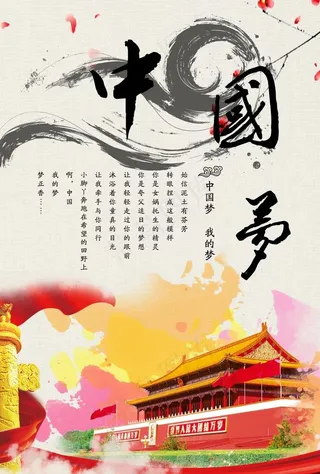 中國夢
中国梦 我的梦
始信泥土有芬芳
转眼捏成这般模样
你是女娲托生的精灵
你是夸父追日的梦想
让我轻轻走过你的眼前
沐浴着你童真的目光
让我牵手与你同行
小脚丫奔跑在希望的田野上
啊,中国
我的梦
梦正香……
世界人民大团结万岁